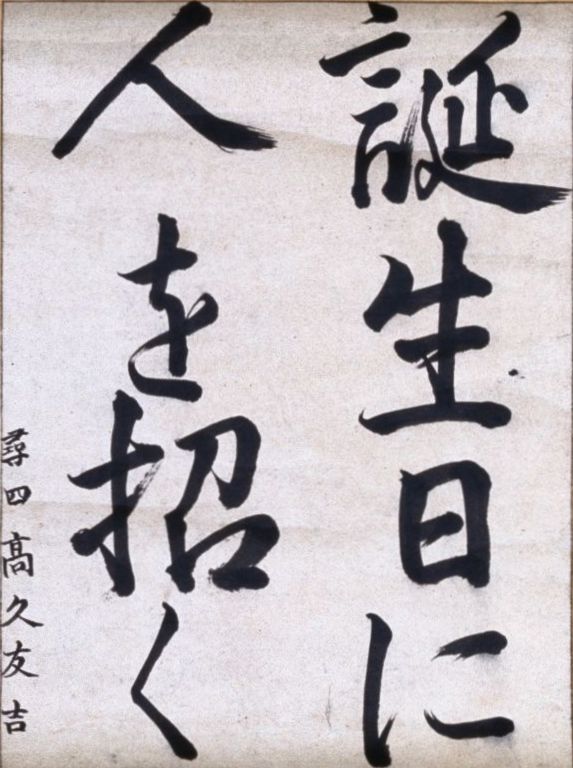 誕生日に
人を招く
尋四髙久友吉